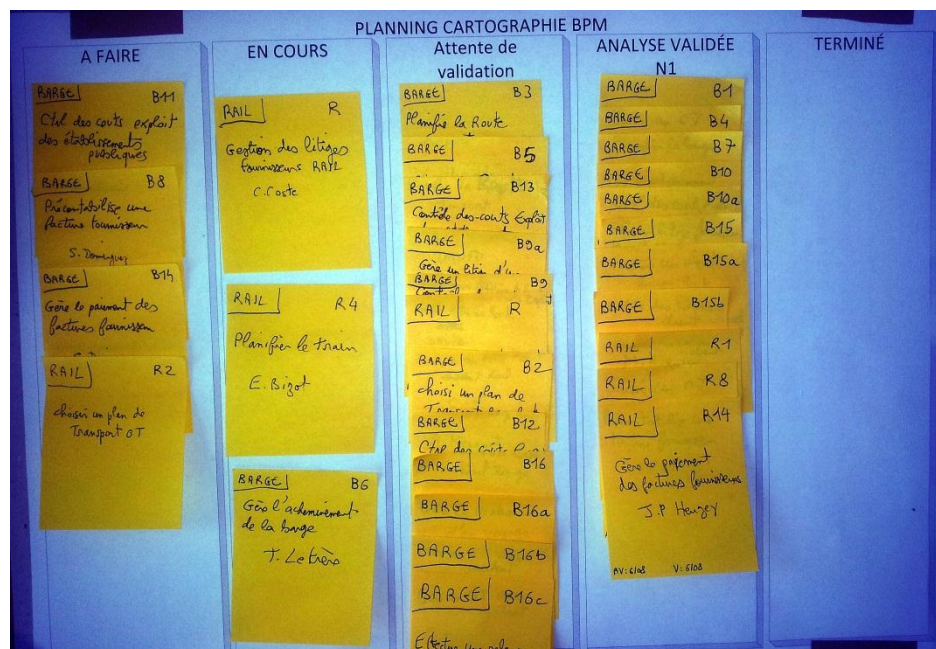 PLANNING CARTOGRAPHIE BPM
A FAIRE
BARGE B11
Ctrl des couts exploit
des établissements
publiques
BARGE B8
Précontabilise une
facture fournisseur
S. Dominguez
BARGE B14
Gère le paiment des
factures fournisseur
RAIL R2
choisir un plan de
Transport OT
EN COURS
RAIL R
Gestion des litiges
fournisseurs RAIL
C. Coste
RAIL R4
Planifier le train
E. Bizot
BARGE B6
Gère l'acheminement
de la barge
T. Letrèro
Attente de
validation
BARGE B3
Planifie la Route
BARGE B5
BARGE B13
Contôle des couts Exploit
BARGE B9a
Gère un litie d'u
BARGE B9
RAIL R
BARGE B2
choisi un plan de
BARGE B12
Ctrl des coûts
BARGE B16
BARGE B16a
BARGE B16b
BARGE B16c
ANALYSE VALIDÉE
N1
BARGE B1
BARGE B4
BARGE B7
BARGE B10
BARGE B10a
BARGE B15
BARGE B15a
BARGE B15b
RAIL R1
RAIL R8
RAIL R14
Gère le paiement
des factures fournisseurs
J.P Henzey
AV: 6/08 V: 6/08
TERMINÉ